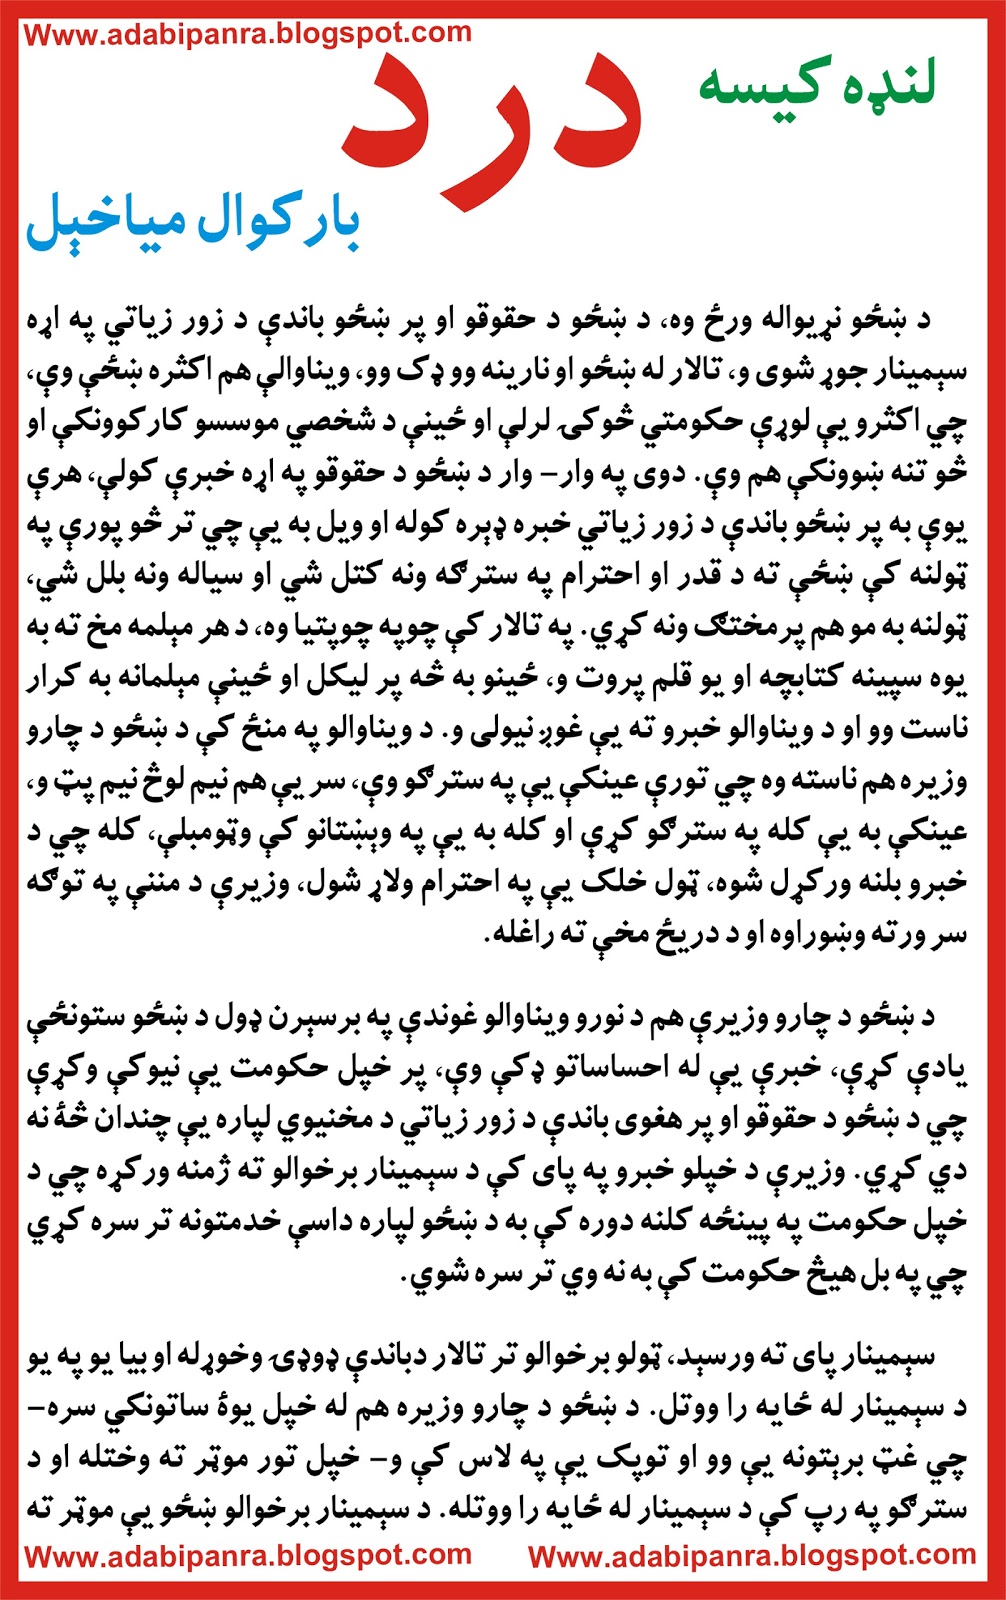 Www.adabipanra.blogspot.com
لنډه کيسه
درد
بارکوال مياخېل
د ښځو نړيواله ورځ وه، د ښځو د حقوقو او پر ښځو باندې د زور زياتي په اړه
سېمينار جوړ شوی و، تالار له ښځو او نارينه وو ډک وو، ويناوالې هم اکثره ښځې وې،
چې اکثرو يې لوړې حکومتي څوکۍ لرلې او ځينې د شخصي موسسو کارکوونکې او
څو تنه ښوونکې هم وې. دوی په وار- وار د ښځو د حقوقو په اړه خبرې کولې، هرې
يوې به پر ښځو باندې د زور زياتي خبره ډېره کوله او ويل به يې چې تر څو پورې په
ټولنه کې ښځې ته د قدر او احترام په سترګه ونه کتل شي او سياله ونه بلل شي،
ټولنه به مو هم پرمختګ ونه کړي. په تالار کې چوپه چوپتيا وه، د هر مېلمه مخ ته به
يوه سپينه کتابچه او يو قلم پروت و، ځينو به څه پر ليکل او ځينې مېلمانه به کرار
ناست وو او د ويناوالو خبرو ته يې غوږ نيولی و. د ويناوالو په منځ کې د ښځو د چارو
وزيره هم ناسته وه چې تورې عينکې يې په سترګو وې، سر يې هم نيم لوڅ نيم پټ و،
عينکې به يې کله په سترګو کړې او کله به يې په وېښتانو کې وټومبلې، کله چې د
خبرو بلنه ورکړل شوه، ټول خلک يې په احترام ولاړ شول، وزيرې د مننې په توګه
سر ورته وښوراوه او د دريځ مخې ته راغله.
د ښځو د چارو وزيرې هم د نورو ويناوالو غوندې په برسېرن ډول د ښځو ستونځې
يادې کړې، خبرې يې له احساساتو ډکې وې، پر خپل حکومت يې نيوکې وکړې
چې د ښځو د حقوقو او پر هغوی باندې د زور زياتي د مخنيوي لپاره يې چندان څۀ نه
دي کړي. وزيرې د خپلو خبرو په پای کې د سېمينار برخوالو ته ژمنه ورکړه چې د
خپل حکومت په پينځه کلنه دوره کې به د ښځو لپاره داسې خدمتونه تر سره کړي
چې په بل هيڅ حکومت کې به نه وي تر سره شوي.
سېمينار پای ته ورسېد، ټولو برخوالو تر تالار دباندې ډوډۍ وخوړله او بيا يو په يو
د سېمينار له ځايه را ووتل. د ښځو د چارو وزيره هم له خپل يوۀ ساتونکي سره-
چې غټ برېتونه يې وو او توپک يې په لاس کې و- خپل تور موټر ته وختله او د
سترګو په رپ کې د سېمينار له ځايه را ووتله. د سېمينار برخوالو ښځو يې موټر ته
Www.adabipanra.blogspot.com
Www.adabipanra.blogspot.com